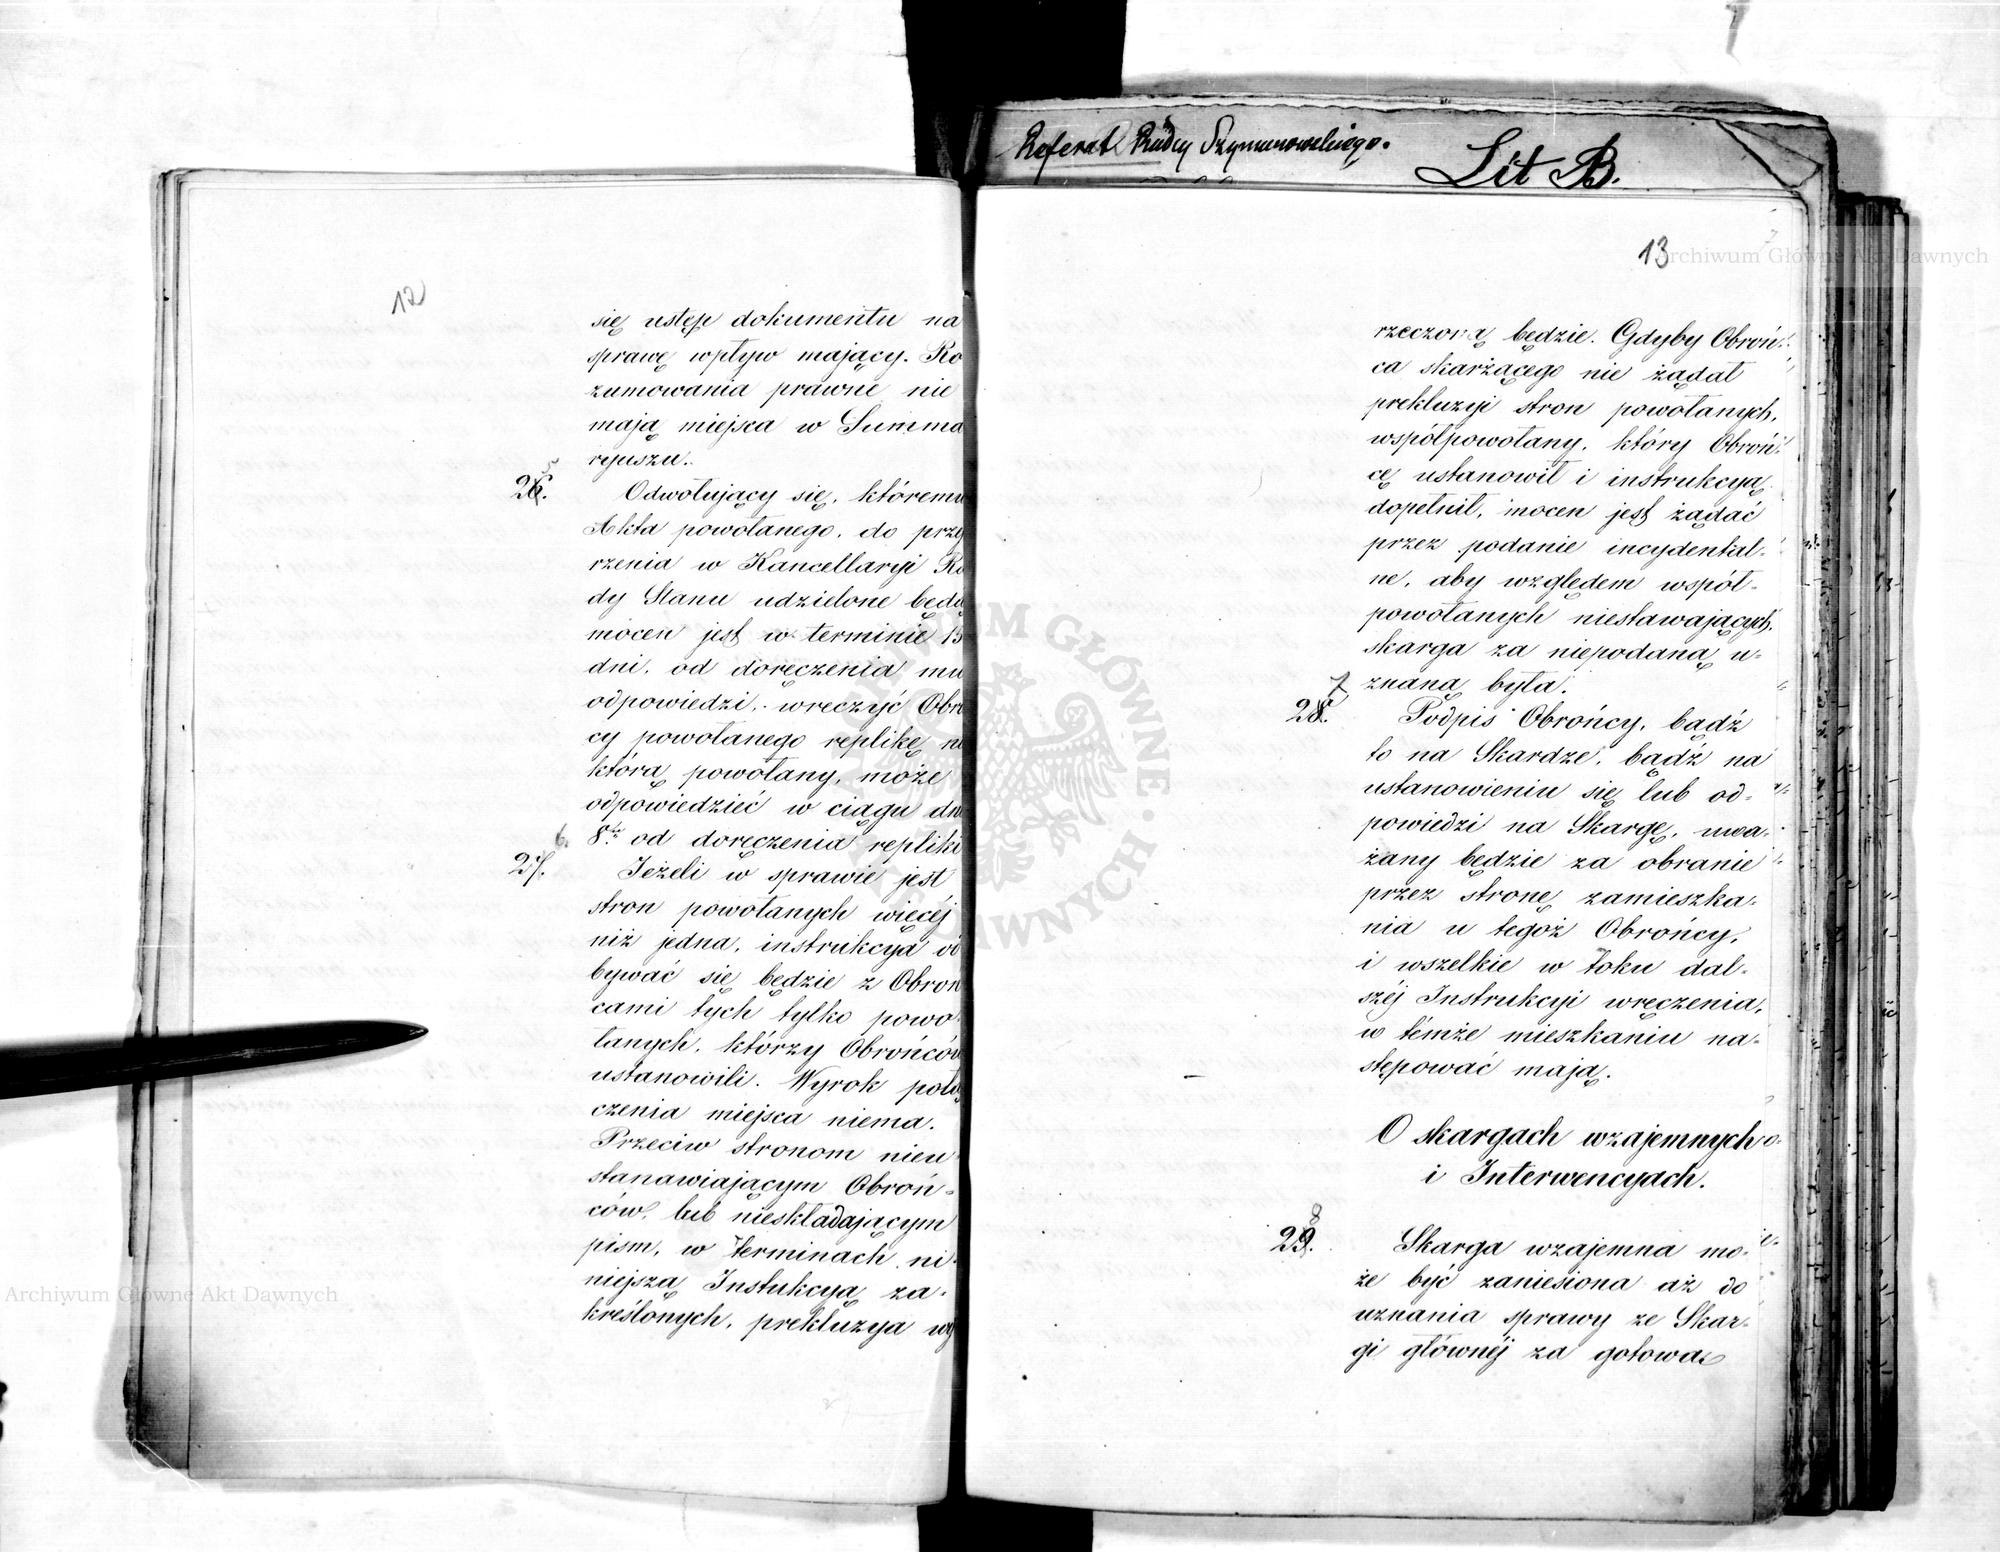 Referat Rádcy Szymanowskiego.
Lit B.
12
się ustęp dokumentu na
sprawę wpływ mający. Ro
zumowania prawne nie
mają miejsca w Summa
ryuszu.
5
26.
Odwołujący się, któremu
Akta powołanego, do przej
rzenia w Kancellaryi Ra
dy Stanu udzielone będą
mocen jest w terminie 15
dni, od doręczenia mu
odpowiedzi, wręczyć Obroń
cy powołanego replikę na
którą powołany, może
odpowiedzieć w ciągu dni
8. od doręczenia repliki
6.
27.
Jeżeli w sprawie jest
stron powołanych więcéj
niż jedna, instrukcya od
bywać się będzie z Obroń
cami tych tylko powo
łanych, którzy Obrońców
ustanowili. Wyrok połą
czenia miejsca niema.
Przeciw stronom nieu
stanawiającym Obroń-
ców, lub nieskładającym
pism, w terminach ni-
niejszą Instukcyą za-
kreślonych, prekluzya wy
Archiwum Główne Akt Dawnych
13
Archiwum Główne Akt Dawnych
rzeczoną będzie. Gdyby Obroń-
ca skarżącego nie żądał
prekluzyi stron powołanych,
współpowołany, który Obroń-
cę ustanowił i instrukcyą
dopełnił, mocen jest żądać
przez podanie incydental-
ne, aby względem współ-
powołanych niestawających,
skarga za niepodaną u-
znaną była.
7
28.
Podpis Obrońcy, bądź
to na Skardze, bądź na
ustanowieniu się lub od-
powiedzi na Skargę, uwa-
żany będzie za obranie
przez stronę zamieszka-
nia u tegoż Obrońcy,
i wszelkie w toku dal-
széj Instrukcyi wręczenia,
w témże mieszkaniu na-
stępować mają.
O skargach wzajemnych
i Interwencyach.
8
29.
Skarga wzajemna mo-
że być zaniesiona aż do
uznania sprawy ze Skar-
gi głównéj za gotową
ARCHIWUM GŁÓWNE AKT DAWNYCH